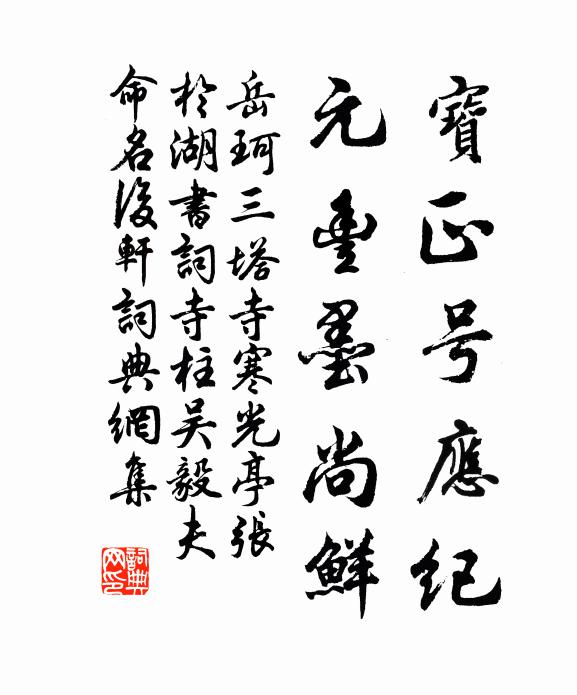 寶正号應紀
元豊墨尚鮮
岳珂三塔寺寒光亭張
於湖書詞寺柱吴毅夫
命名後軒詞典網集
詞典網印